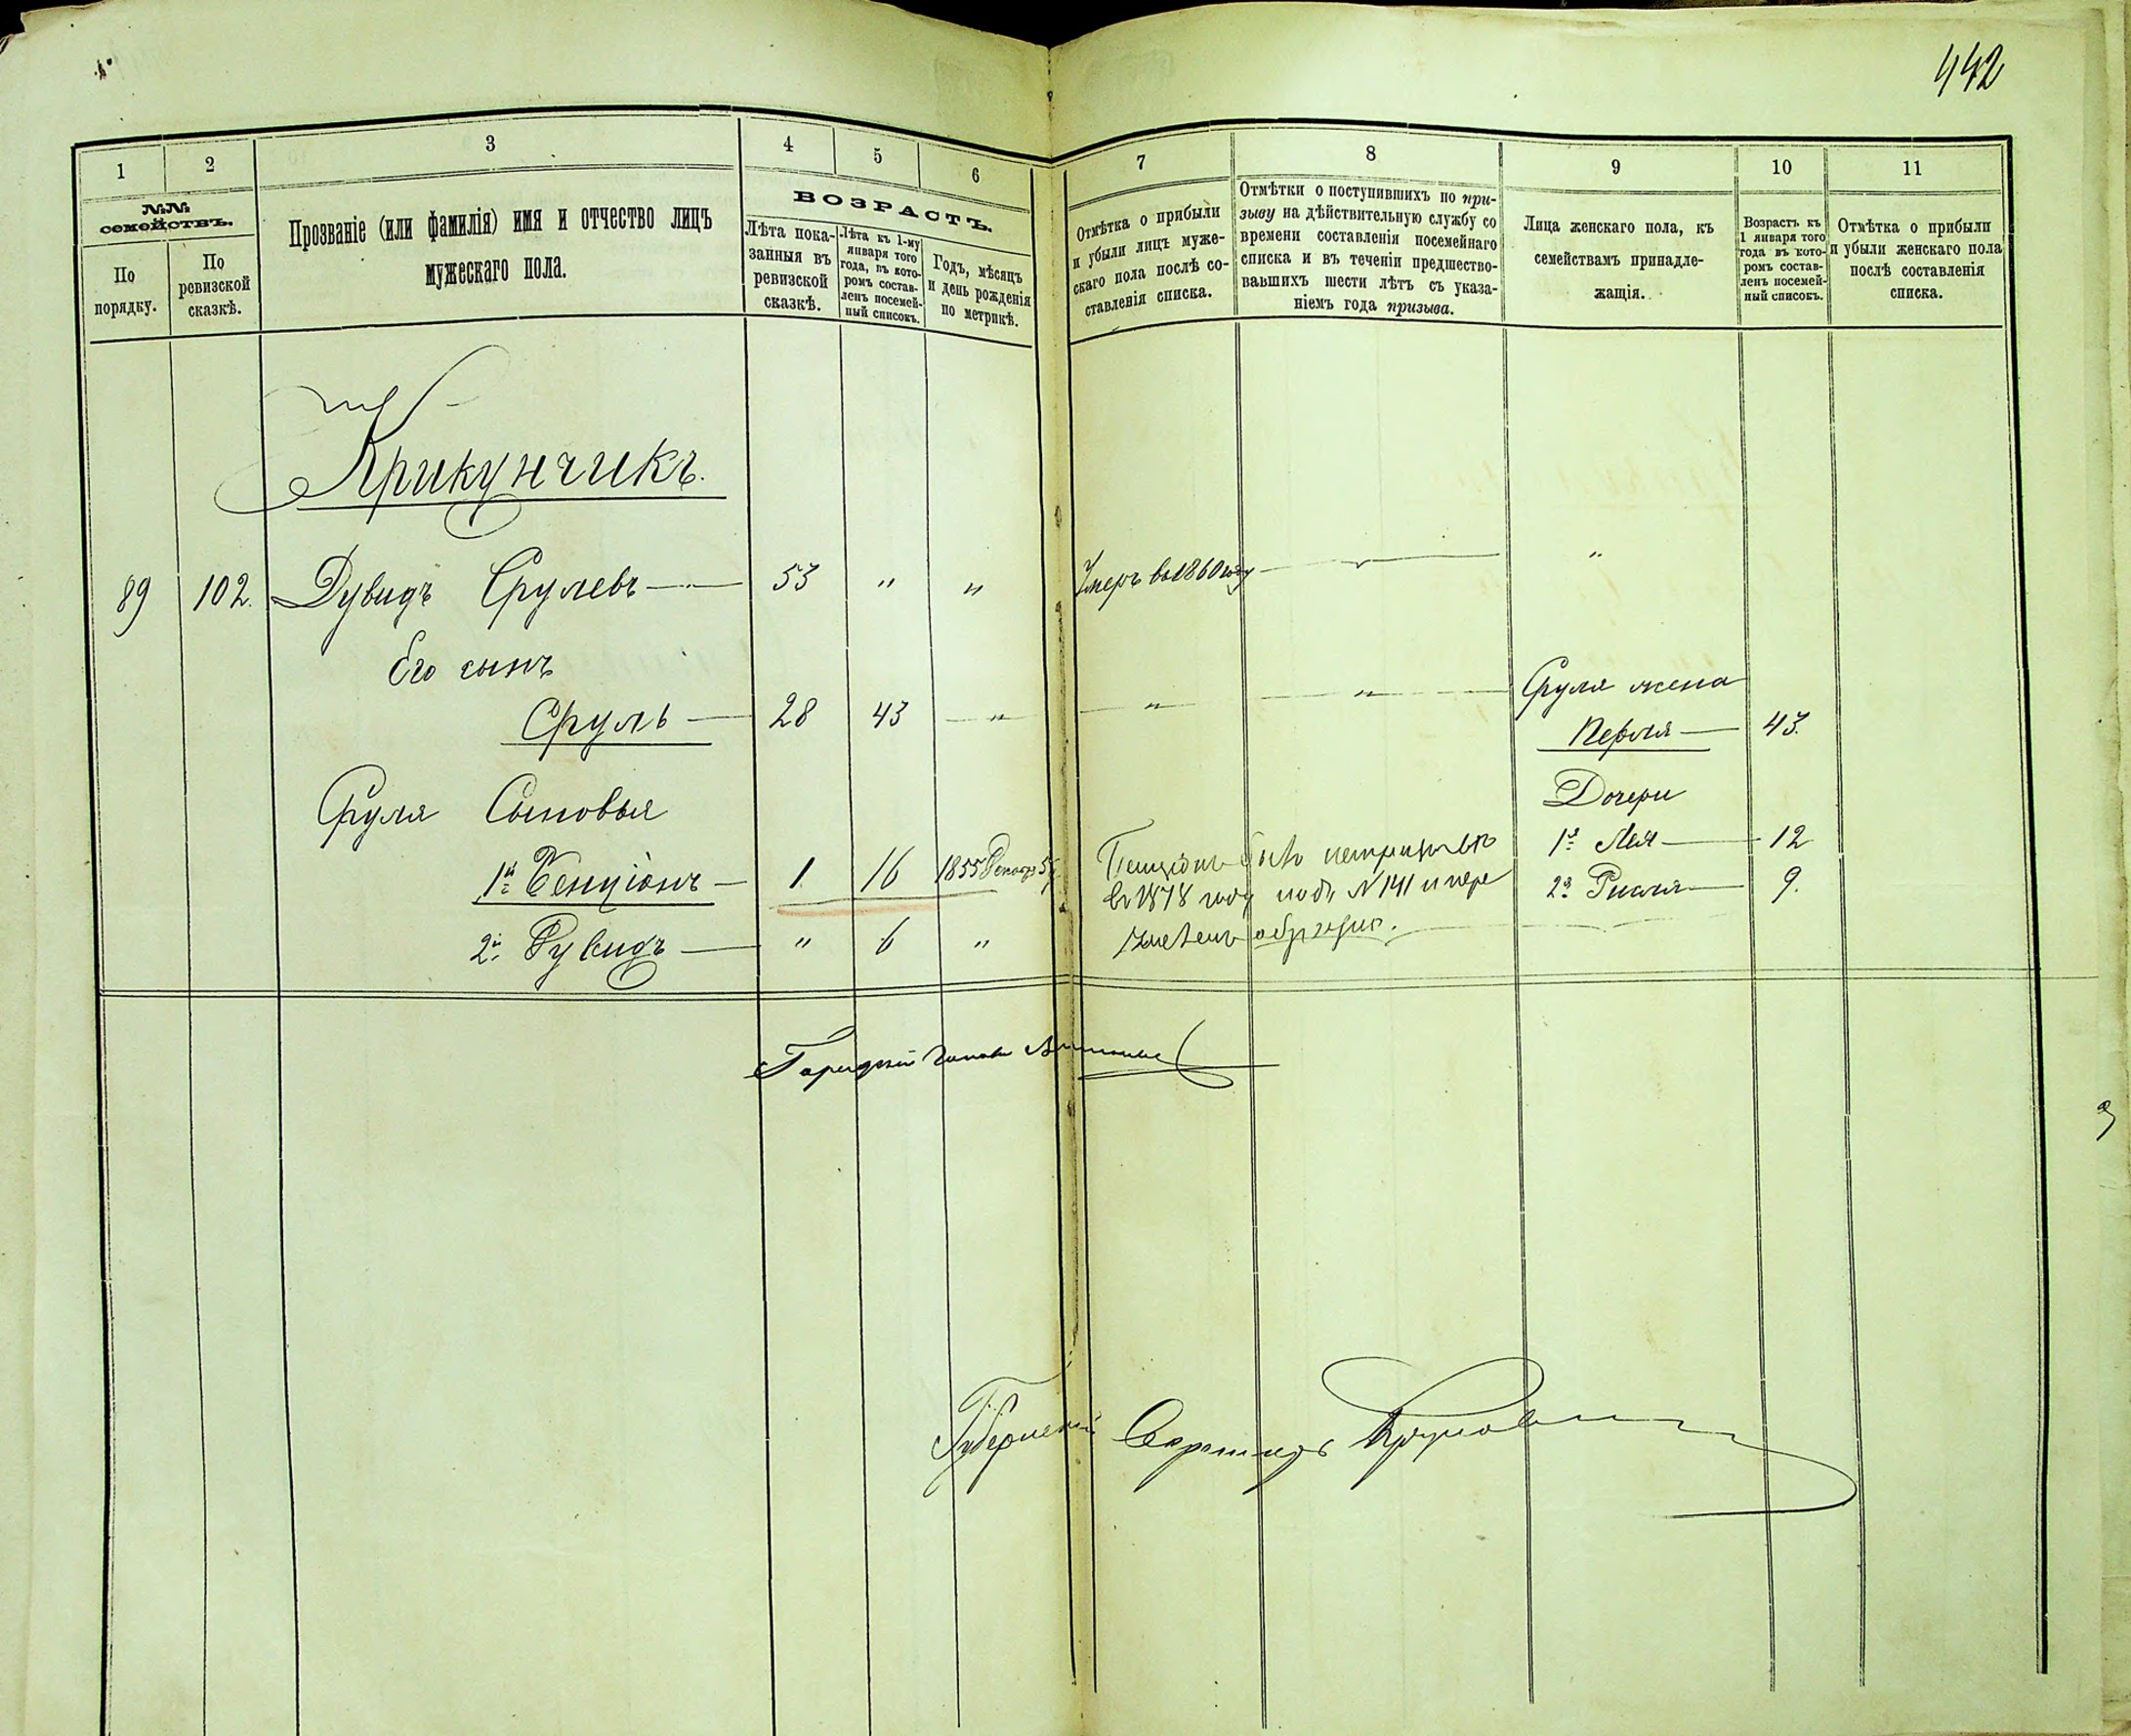 442
1
2
3
4
5
6
7
8
9
10
11
№№
семействъ.
По
порядку.
По
ревизской
сказкѣ.
Прозваніе (или фамилія) имя и отчество лицъ
мужескаго пола.
ВОЗРАСТЪ.
Лѣта пока-
занныя въ
ревизской
сказкѣ.
Лѣта къ 1-му
января того
года, въ кото-
ромъ состав-
ленъ посемей-
ный списокъ.
Годъ, мѣсяцъ
и день рожденія
по метрикѣ.
Отмѣтка о прибыли
и убыли лицъ муже-
скаго пола послѣ со-
ставленія списка.
Отмѣтки о поступившихъ по при-
зыву на дѣйствительную службу со
времени составленія посемейнаго
списка и въ теченіи предшество-
вавшихъ шести лѣтъ съ указа-
ніемъ года призыва.
Лица женскаго пола, къ
семействамъ принадле-
жащія.
Возрастъ къ
1 января того
года въ кото-
ромъ состав-
ленъ посемей-
ный списокъ.
Отмѣтка о прибыли
и убыли женскаго пола
послѣ составленія
списка.
Крикунчикъ.
89 102. Дувидъ Срулевъ — 53 " " Умеръ въ 1860 году — "
Его сынъ
Сруль — 28 43 — " — " — " — Сруля жена
Перля — 43.
Сруля Сыновья
Дочери
1й Бенціонъ — 1 16 1855 Декабр 5
1я Лея — 12
2й Дувидъ — " 6 "
2я Рисля — 9.
Бенціонъ
въ 1878 году подъ № 141 и пере
Городской Голова
Губернскій Секретарь